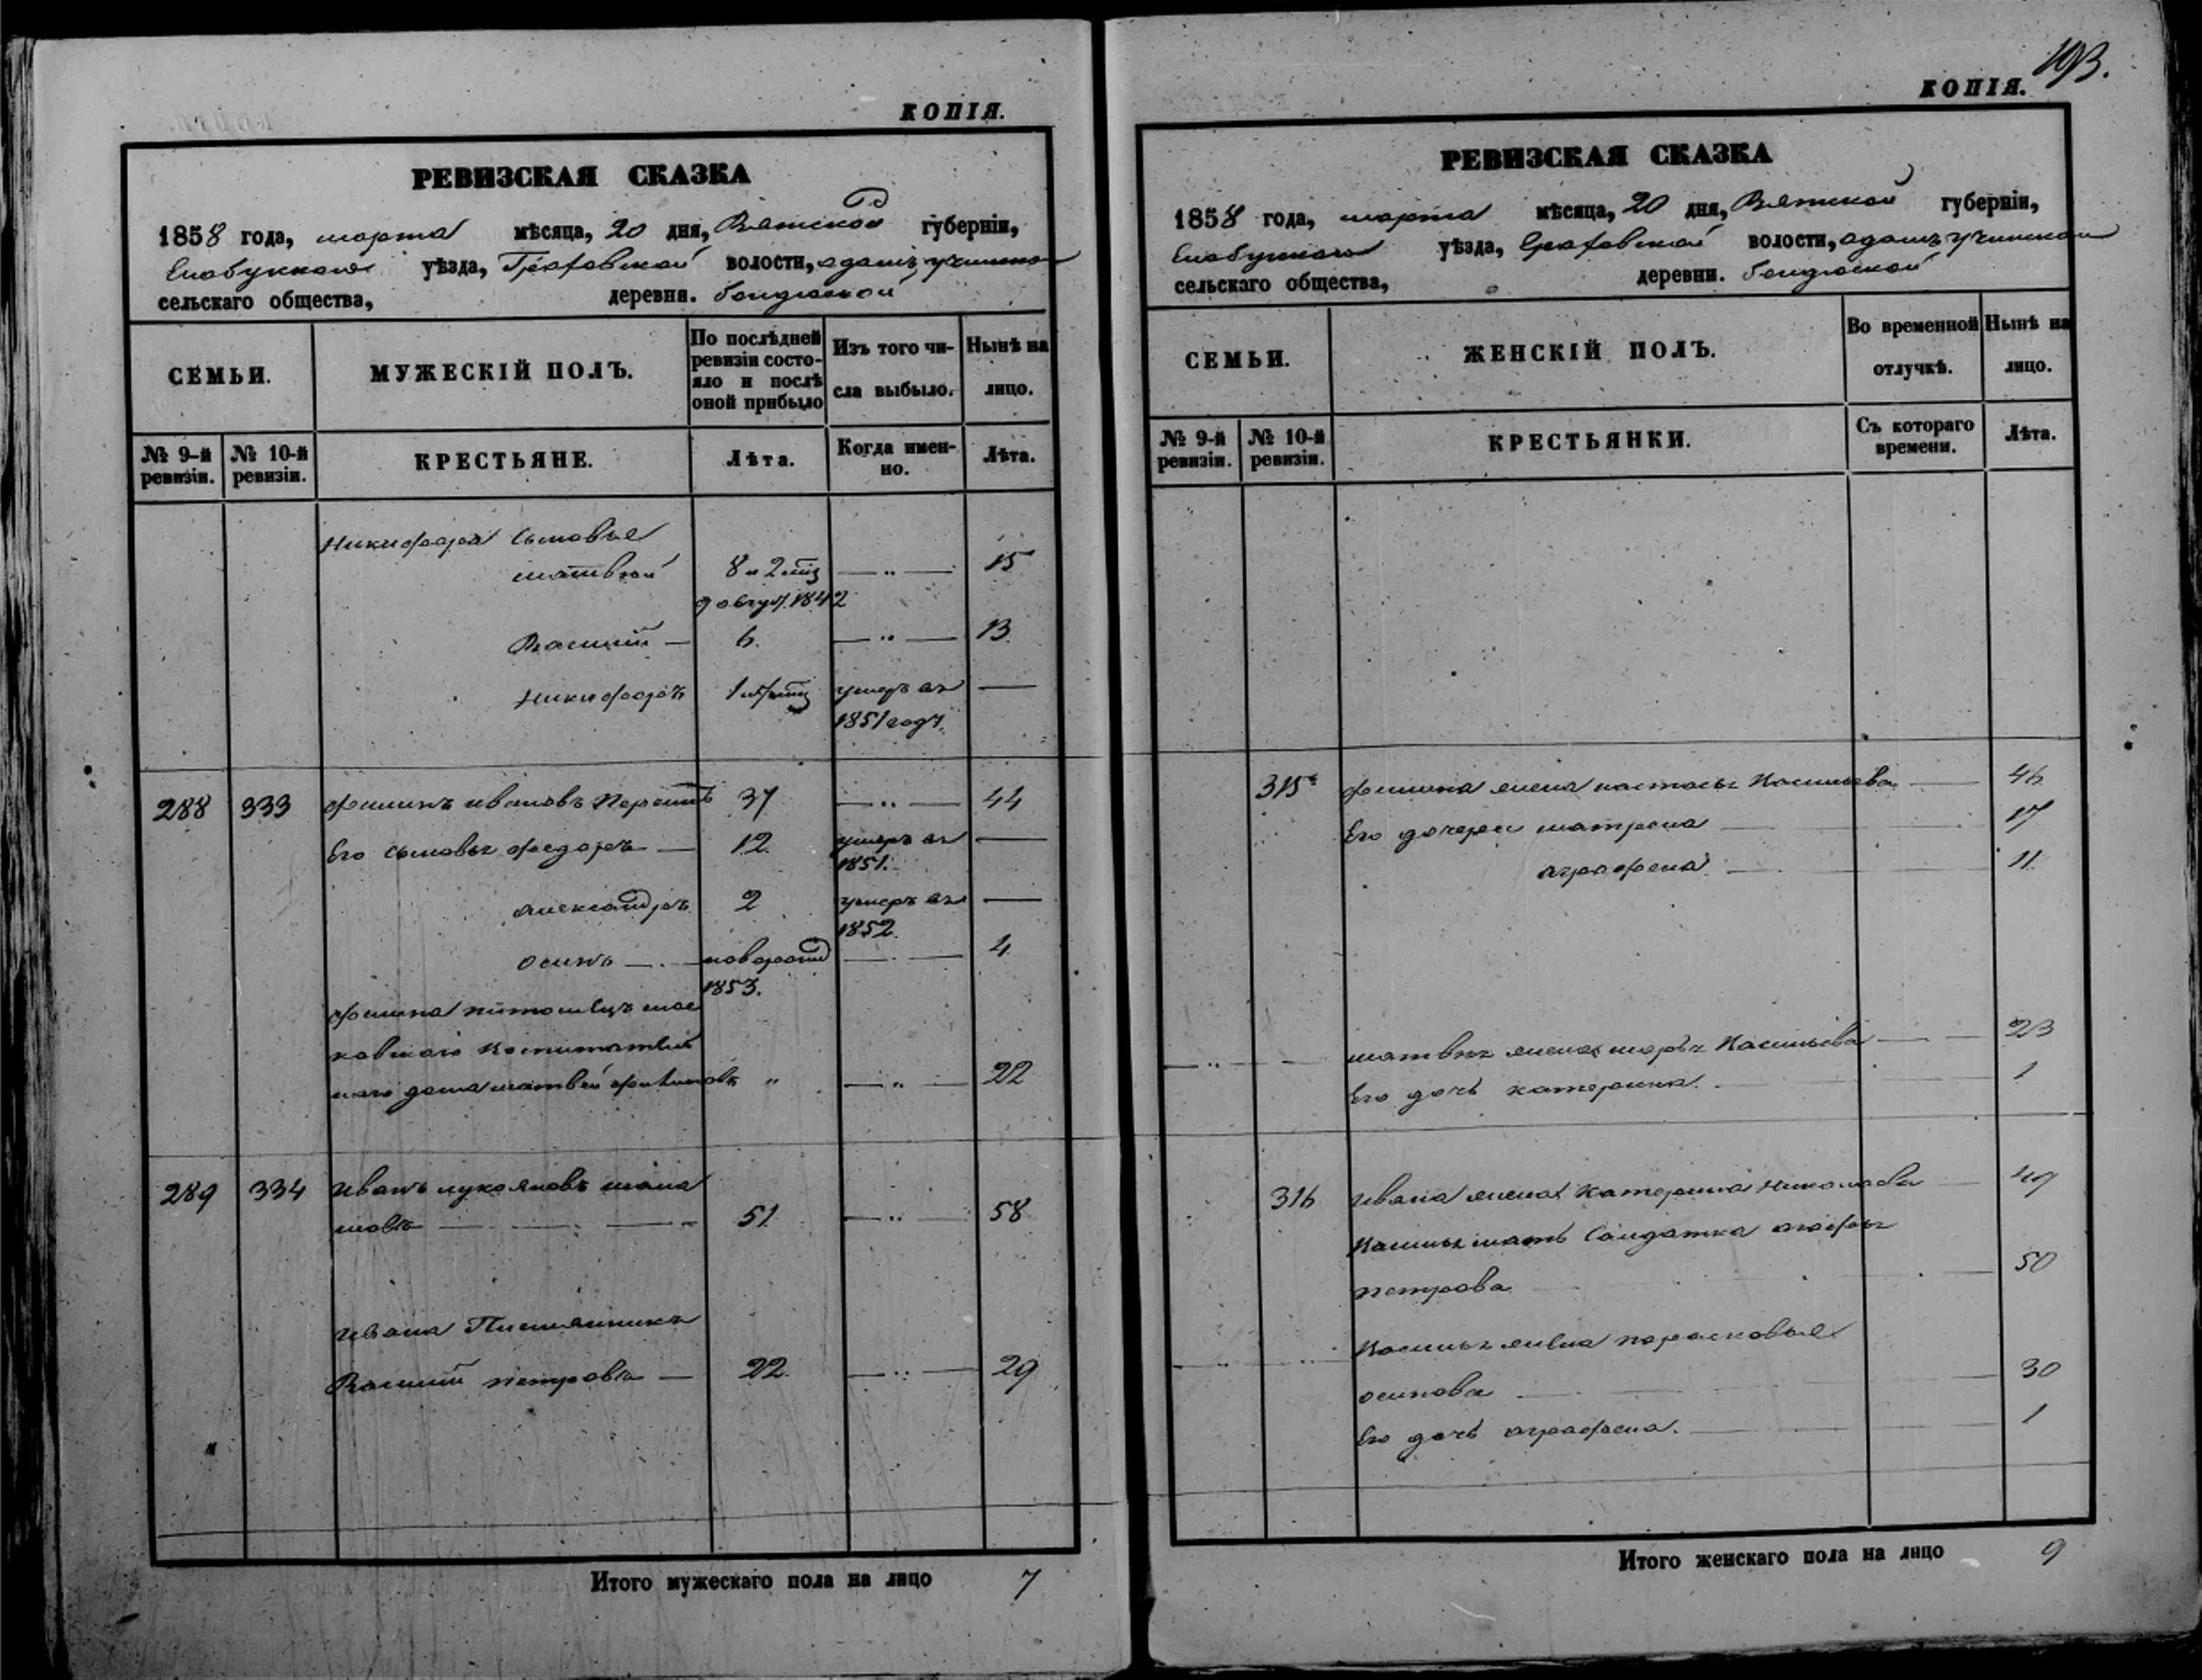 КОПІЯ.
РЕВИЗСКАЯ СКАЗКА
1858 года, марта мѣсяца, 20 дня, Вятской губерніи,
Елабужскаго уѣзда, Граховской волости,
сельскаго общества, деревни.
СЕМЬИ.
МУЖЕСКІЙ ПОЛЪ.
По послѣдней
ревизіи состо-
яло и послѣ
оной прибыло
Изъ того чи-
сла выбыло.
Нынѣ на
лицо.
№ 9-й
ревизіи.
№ 10-й
ревизіи.
КРЕСТЬЯНЕ.
Лѣта.
Когда имен-
но.
Лѣта.
Никифора сыновья
Матвей 8 — „ — 15
9 август. 1842
Василій — 6. — „ — 13
Никифоръ 1 умеръ въ —
1851 году.
288 333 Филипъ Ивановъ 37 — „ — 44
Его сыновья Федоръ — 12 умеръ въ —
1851.
Александръ 2 умеръ въ —
1852.
Осипъ — новорожд — 4
1853.
Филипа питомецъ мос
ковскаго воспитатель
наго дома Матвей „ — „ — 22
289 334 Иванъ Лукояновъ
51 — „ — 58
Ивана Племянникъ
Василій Петровъ — 22. — „ — 29
Итого мужескаго пола на лицо 7
193.
КОПІЯ.
РЕВИЗСКАЯ СКАЗКА
1858 года, марта мѣсяца, 20 дня, Вятской губерніи,
Елабужскаго уѣзда, Граховской волости,
сельскаго общества, деревни.
СЕМЬИ.
ЖЕНСКІЙ ПОЛЪ.
Во временной
отлучкѣ.
Нынѣ на
лицо.
№ 9-й
ревизіи.
№ 10-й
ревизіи.
КРЕСТЬЯНКИ.
Съ котораго
времени.
Лѣта.
315 Филипа жена Настасья Васильева — 46
Его дочери Матрена — 17
Аграфена — 11
Матвея жена Марья Васильева — 23
Его дочь Катерина — 1
316 Ивана жена Катерина Николаева — 49
Василья мать Солдатка
Петрова — 50
Василья жена Парасковья
Осипова — 30
Его дочь Аграфена. — 1
Итого женскаго пола на лицо 9